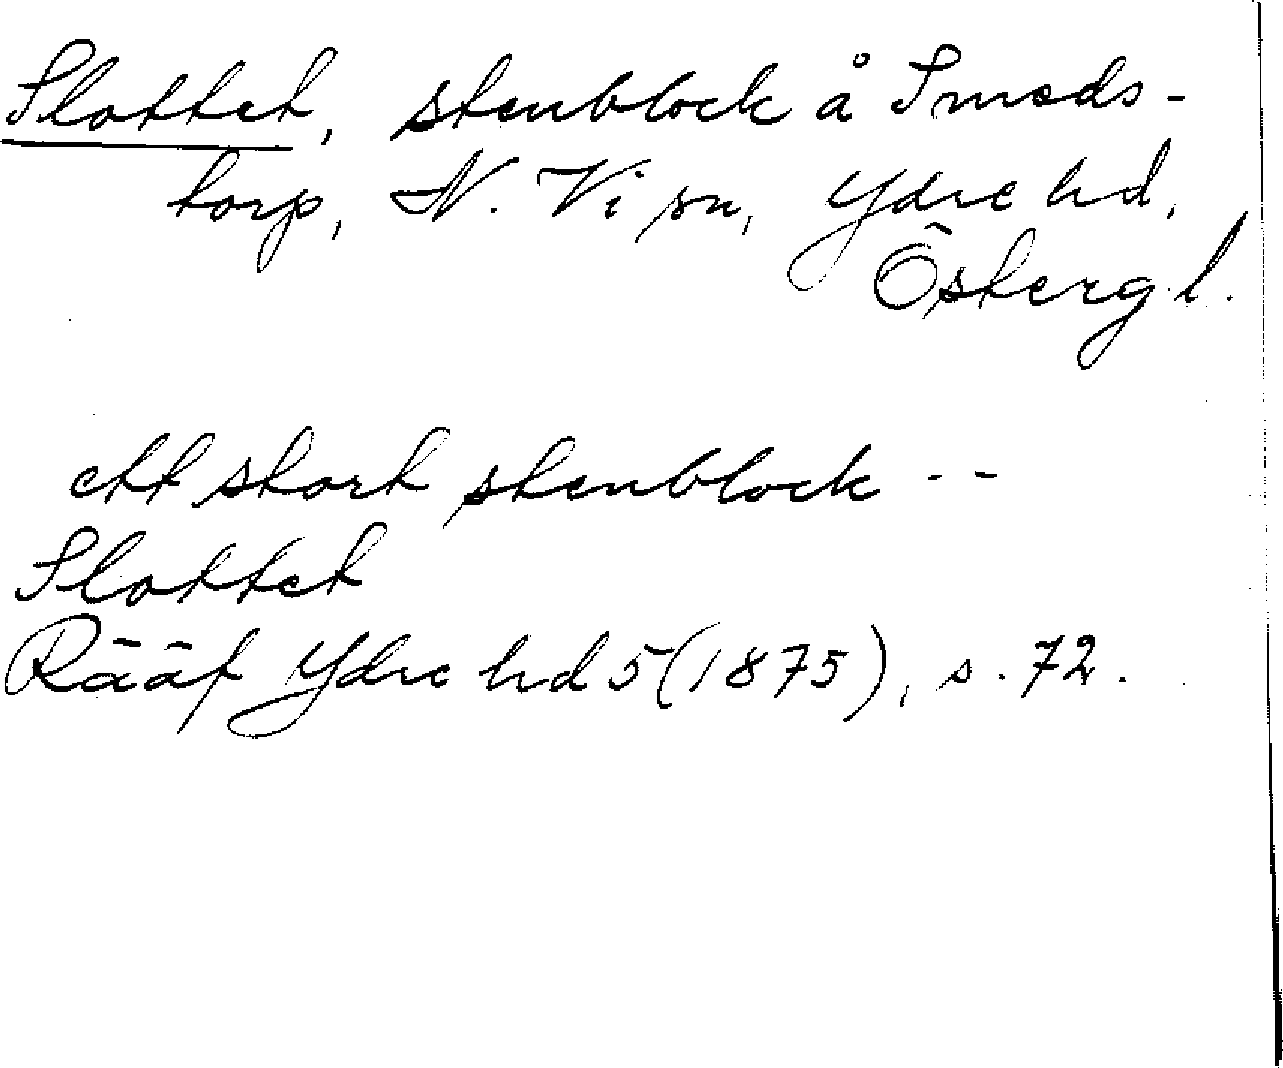 Slottet, stenblock å Smeds-
torp, N. Vi sn, Ydre hd,
Östergl.
ett stort stenblock --
Slottet
Rääf Ydre hd 5 (1875), s. 72.